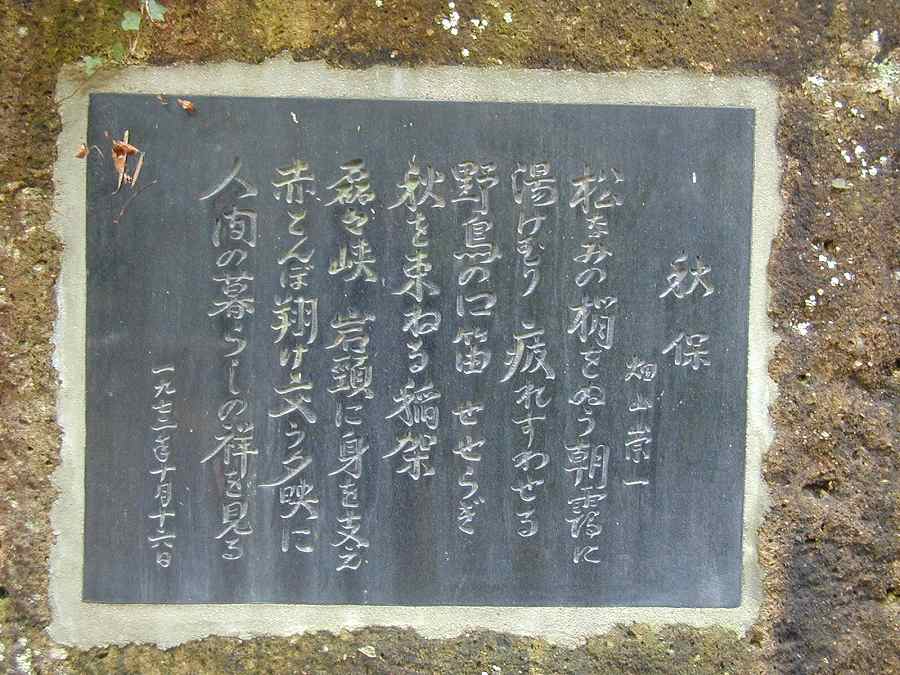 秋保
畑山崇一
松なみの梢をぬう朝靄に
湯けむり 疲れすわせる
野鳥の口笛 せせらぎ
秋を束ねる稲架
磊々峡 岩頭に身を支え
赤とんぼ翔け交う夕映に
人間の暮らしの祥を見る
一九七三年十月十六日